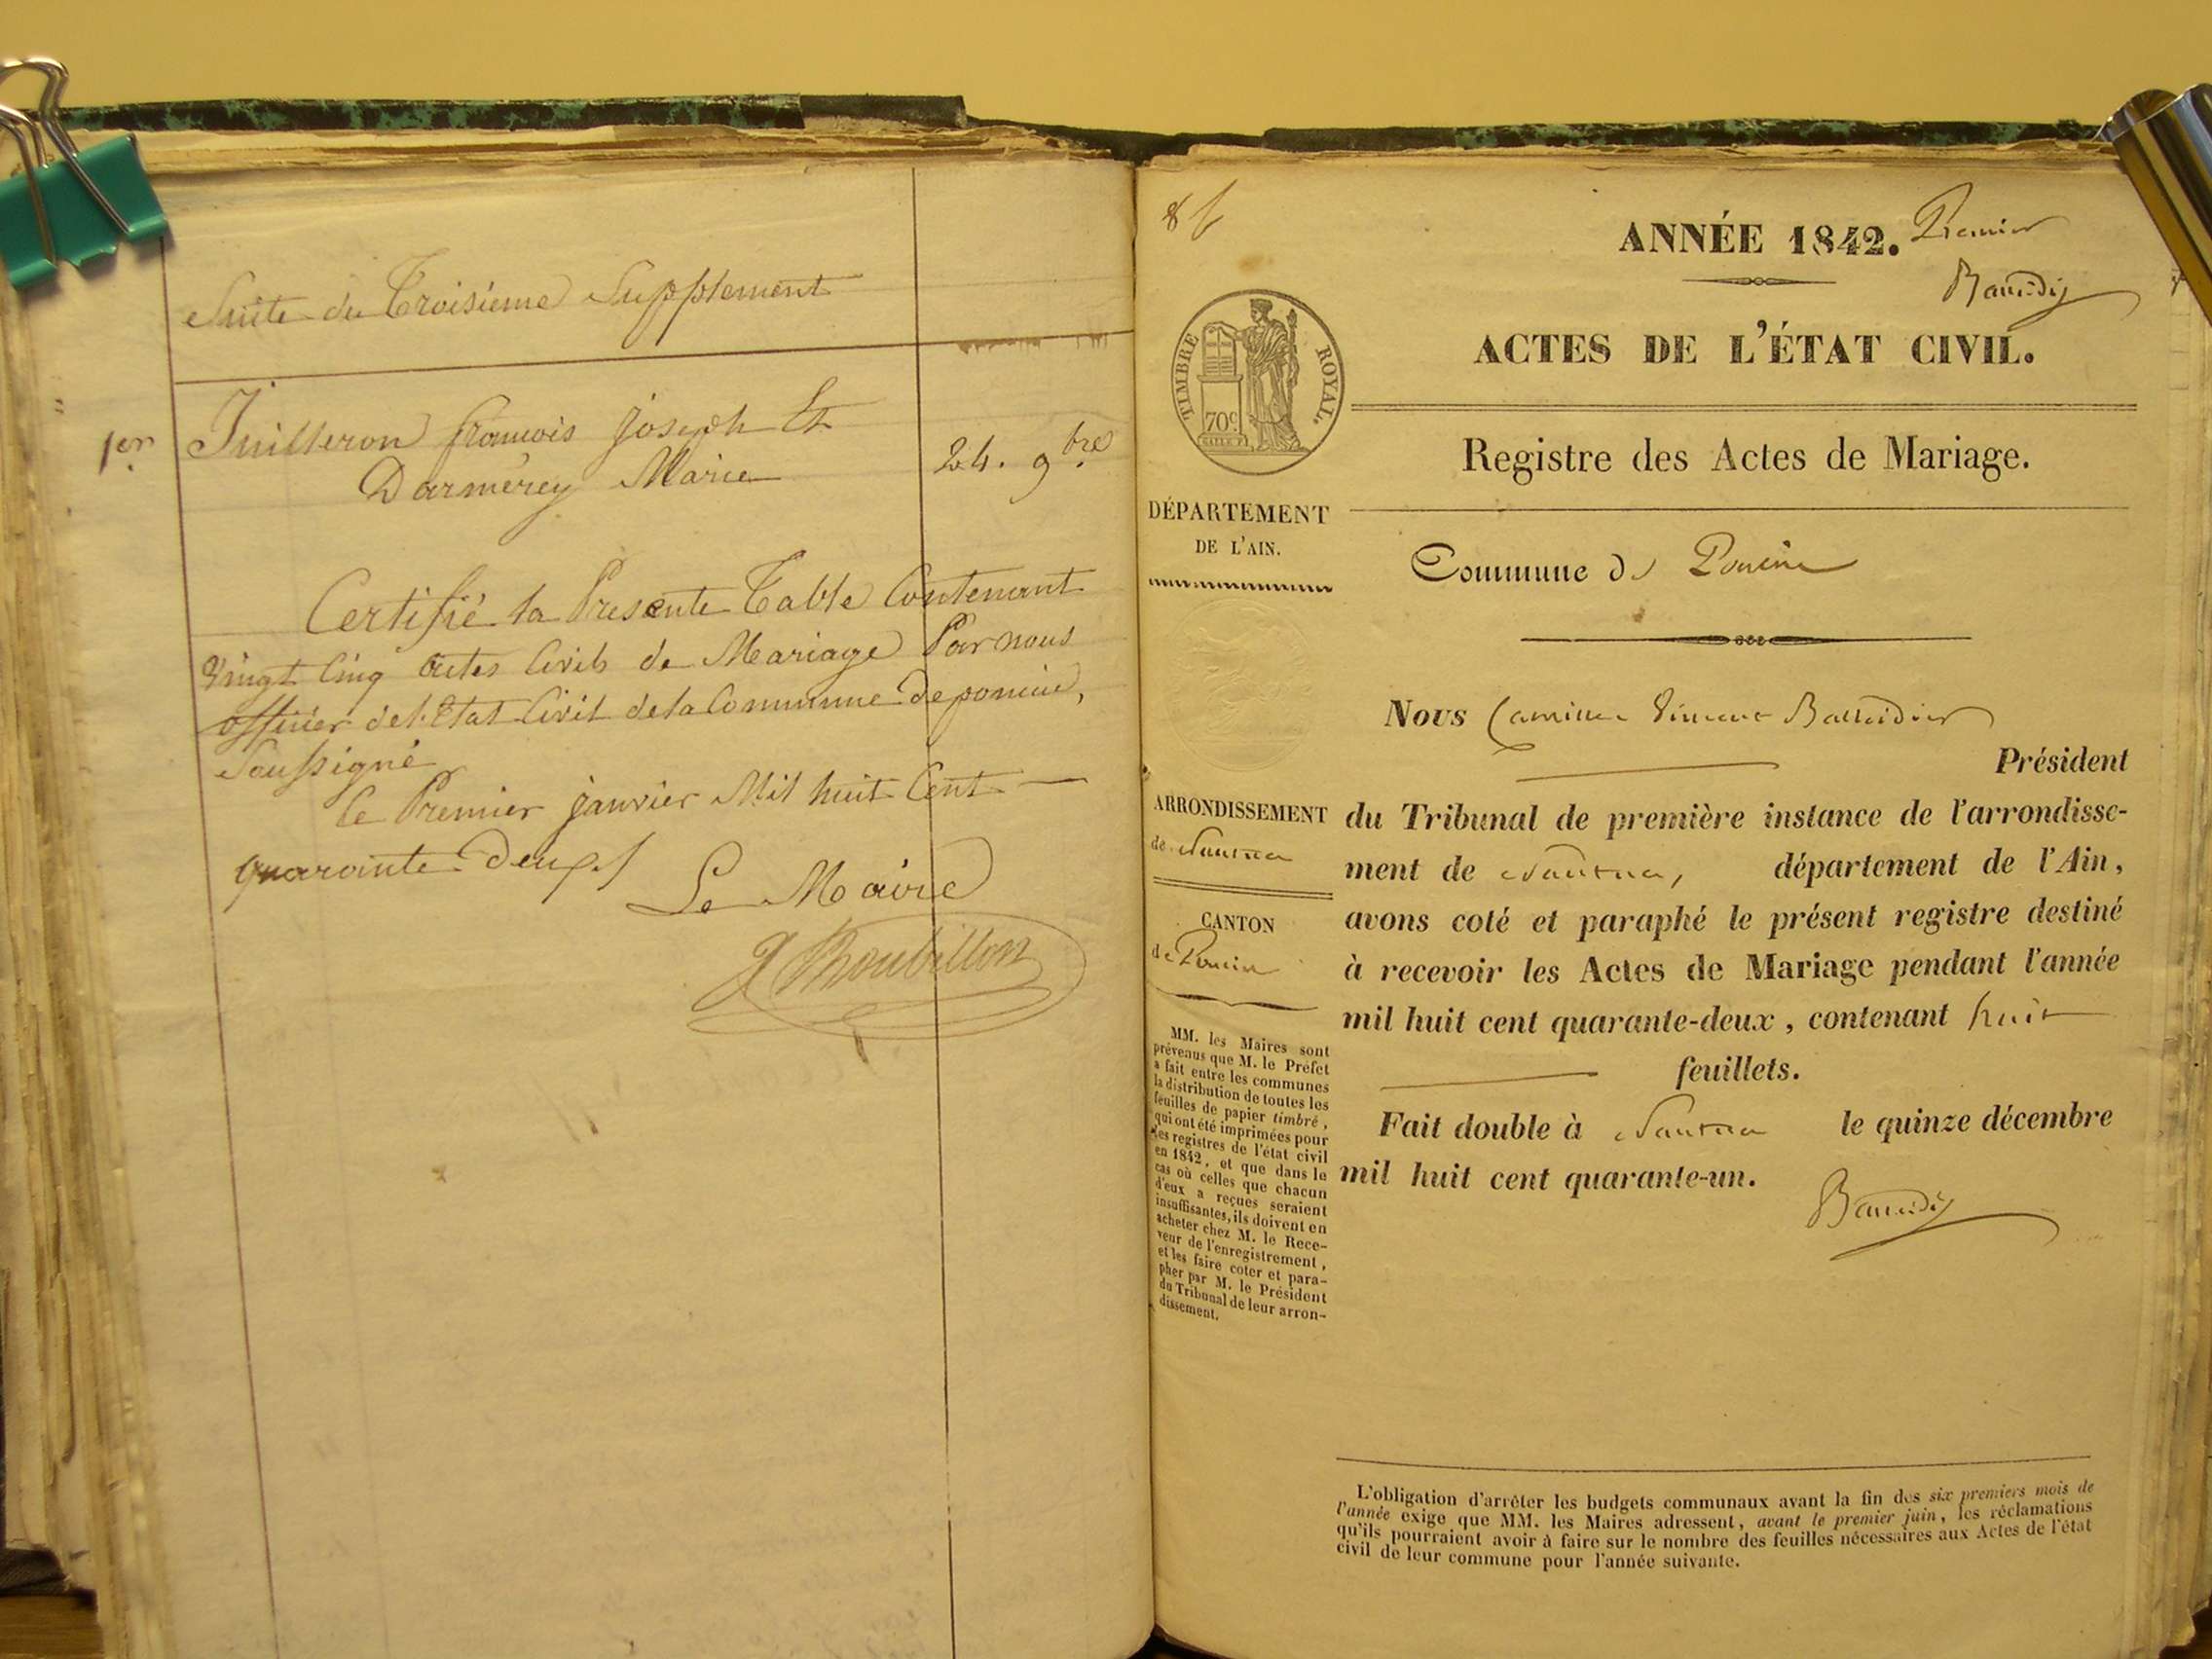 Suite du Troisieme Supplement
1er
Juilleron francois joseph Et
Darmérey Marie
24. 9bre
Certifié la Presente Table Contenant
Vingt Cinq actes Civils de Mariage Par nous
officier de l'Etat Civil de la Commune de poncin,
Soussigné
le Premier janvier Mil huit Cent
quarante Deux
Le Maire
J Roubillon
ANNÉE 1842.
Premier
ACTES DE L'ÉTAT CIVIL.
TIMBRE ROYAL.
70c
Registre des Actes de Mariage.
DÉPARTEMENT
DE L'AIN.
Commune de Poncin
Nous Camille Vincent
Président
ARRONDISSEMENT
de Nantua
CANTON
de Poncin
du Tribunal de première instance de l'arrondisse-
ment de Nantua, département de l'Ain,
avons coté et paraphé le présent registre destiné
à recevoir les Actes de Mariage pendant l'année
mil huit cent quarante-deux, contenant huit
feuillets.
Fait double à Nantua le quinze décembre
mil huit cent quarante-un.
MM. les Maires sont
prévenus que M. le Préfet
a fait entre les communes
la distribution de toutes les
feuilles de papier timbré,
qui ont été imprimées pour
les registres de l'état civil
en 1842, et que dans le
cas où celles que chacun
d'eux a reçues seraient
insuffisantes, ils doivent en
acheter chez M. le Rece-
veur de l'enregistrement,
et les faire coter et para-
pher par M. le Président
du Tribunal de leur arron-
dissement.
L'obligation d'arrêter les budgets communaux avant la fin des six premiers mois de
l'année exige que MM. les Maires adressent, avant le premier juin, les réclamations
qu'ils pourraient avoir à faire sur le nombre des feuilles nécessaires aux Actes de l'état
civil de leur commune pour l'année suivante.